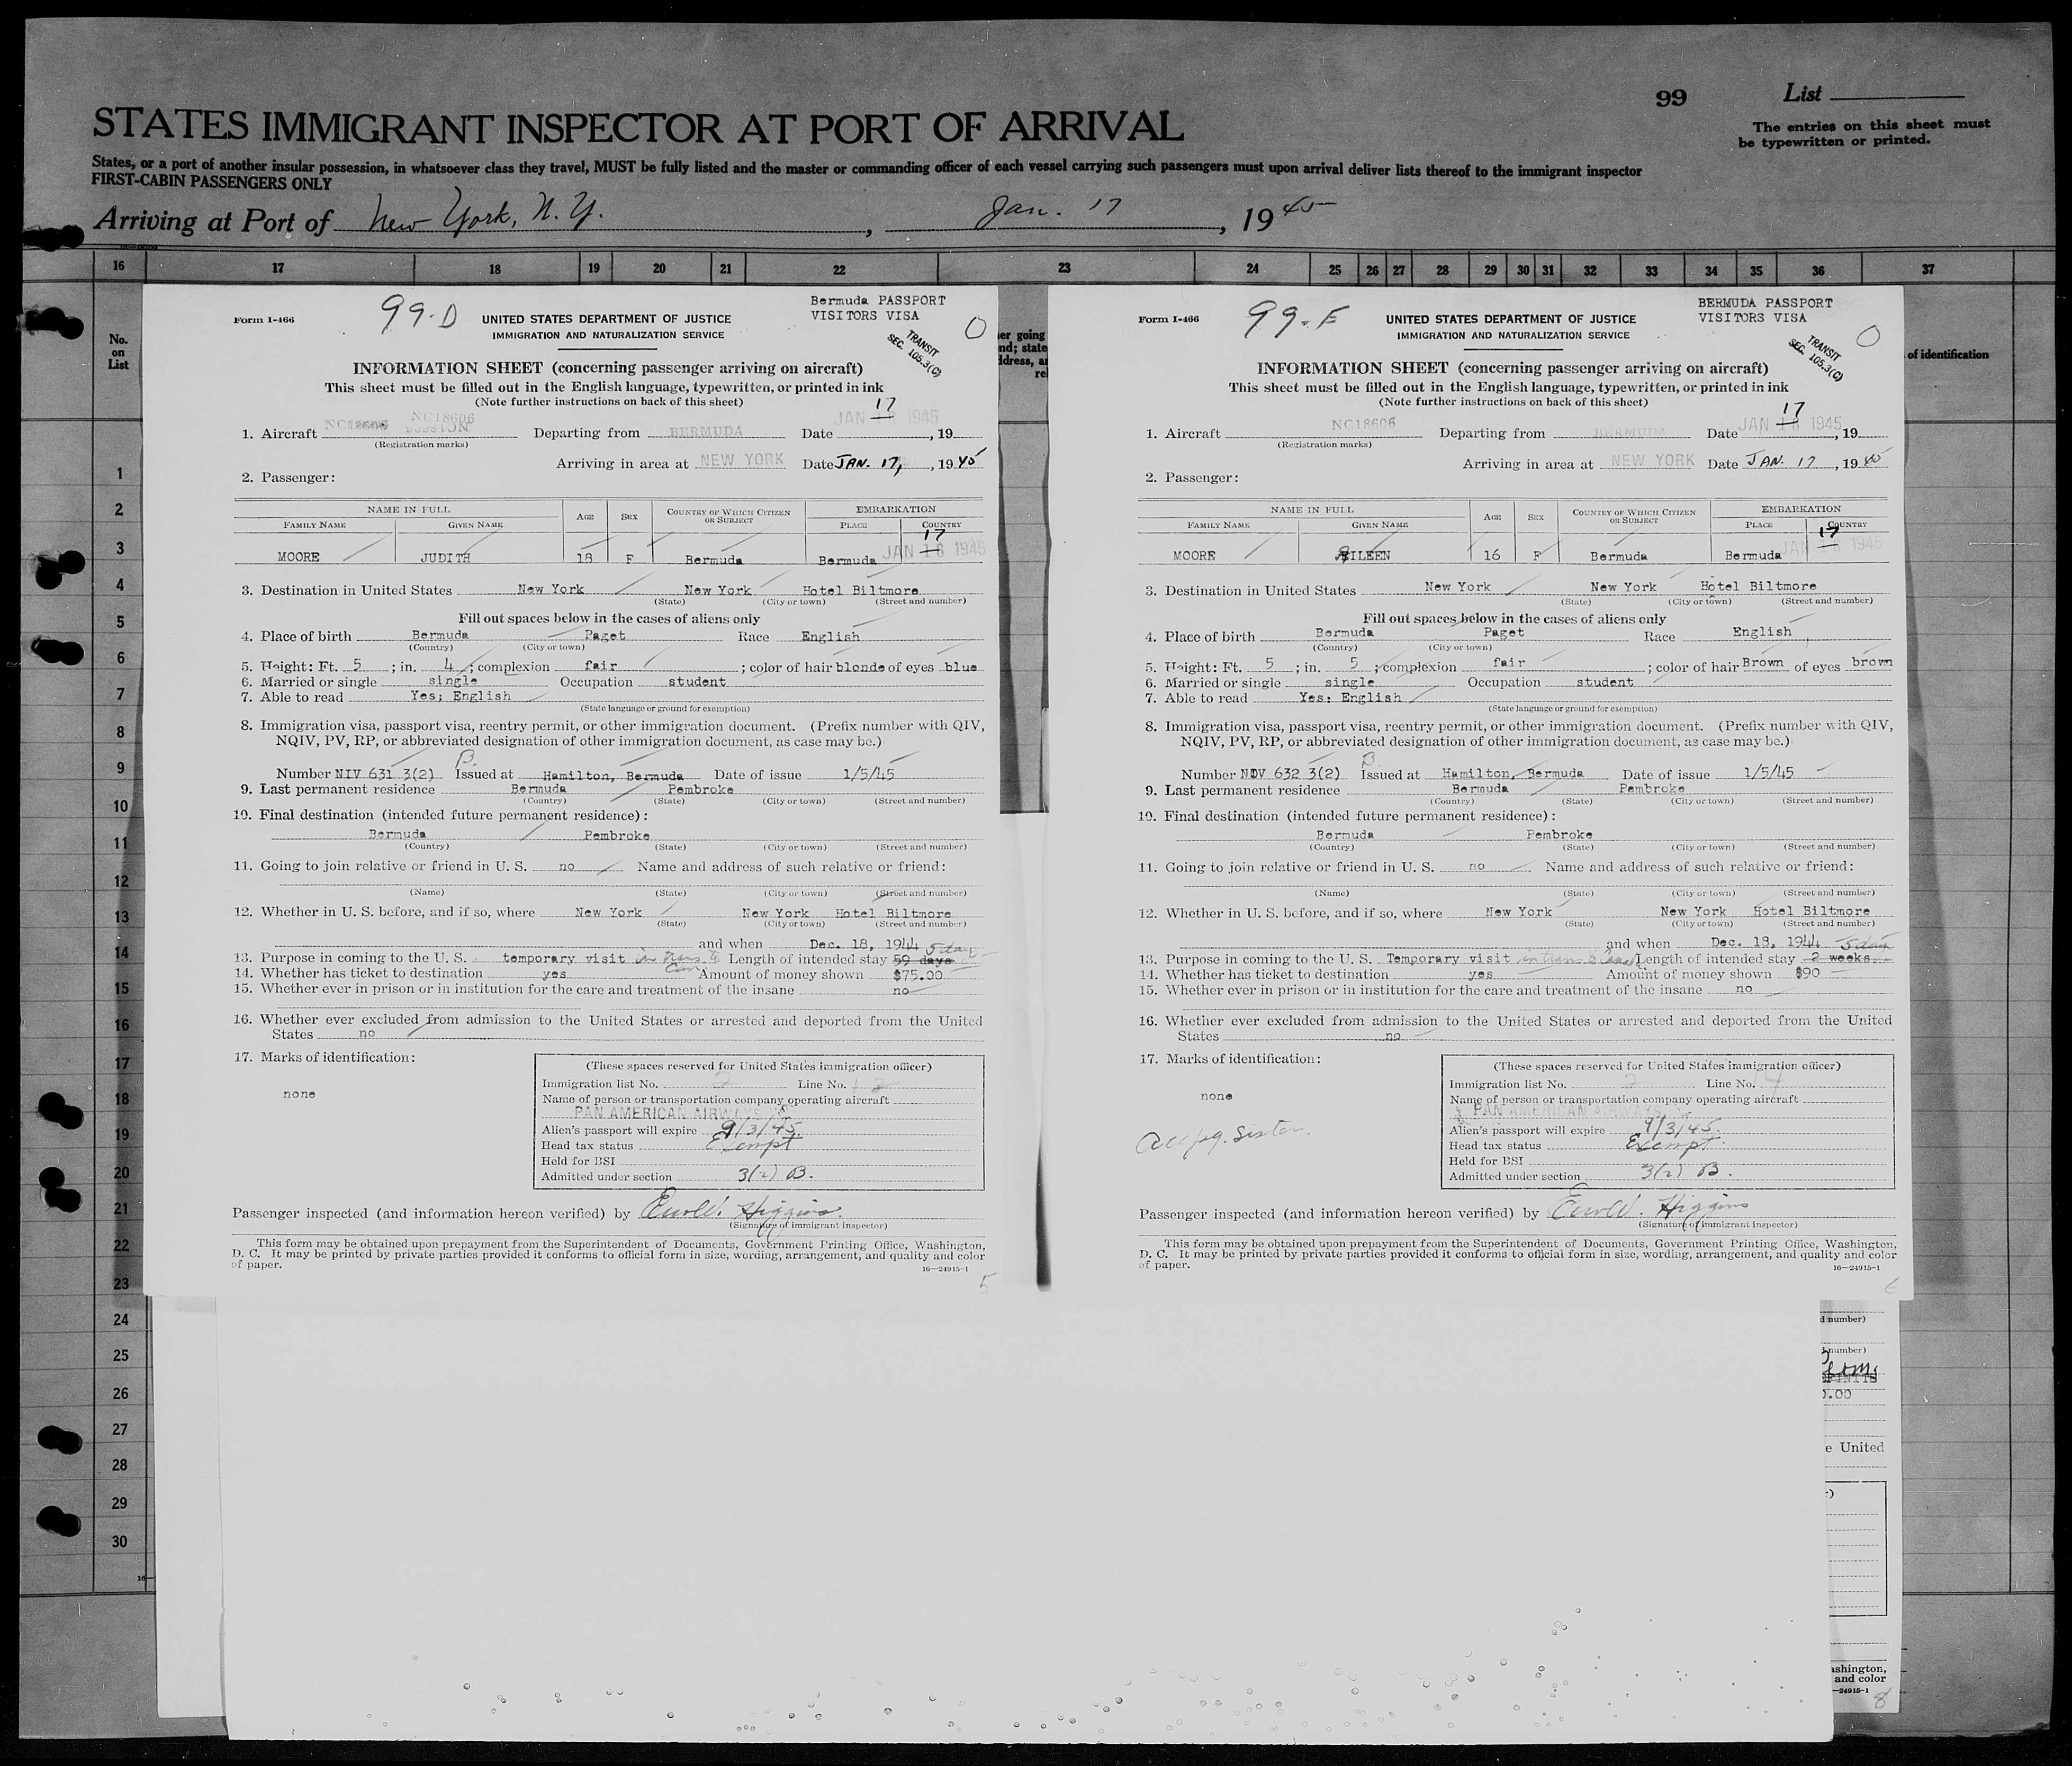 99
List
STATES IMMIGRANT INSPECTOR AT PORT OF ARRIVAL
The entries on this sheet must
be typewritten or printed.
States, or a port of another insular possession, in whatsoever class they travel, MUST be fully listed and the master or commanding officer of each vessel carrying such passengers must upon arrival deliver lists thereof to the immigrant inspector
FIRST-CABIN PASSENGERS ONLY
Arriving at Port of New York, N. Y. , Jan. 17 , 1945
16 17 18 19 20 21 22 23 24 25 26 27 28 29 30 31 32 33 34 35 36 37
No.
on
List
1
2
3
4
5
6
7
8
9
10
11
12
13
14
15
16
17
18
19
20
21
22
23
24
25
26
27
28
29
30
Form I-466
99-D
UNITED STATES DEPARTMENT OF JUSTICE
IMMIGRATION AND NATURALIZATION SERVICE
Bermuda PASSPORT
VISITORS VISA
TRANSIT
SEC. 105.3(C)
INFORMATION SHEET (concerning passenger arriving on aircraft)
This sheet must be filled out in the English language, typewritten, or printed in ink
(Note further instructions on back of this sheet)
NC18606
17
1. Aircraft NC18606 Departing from BERMUDA Date JAN 1945 , 19
(Registration marks)
Arriving in area at NEW YORK Date JAN. 17, , 1945
2. Passenger:
NAME IN FULL AGE SEX COUNTRY OF WHICH CITIZEN OR SUBJECT EMBARKATION
FAMILY NAME GIVEN NAME PLACE COUNTRY
17
MOORE JUDITH 18 F Bermuda Bermuda JAN 16 1945
3. Destination in United States New York New York Hotel Biltmore
(State) (City or town) (Street and number)
Fill out spaces below in the cases of aliens only
4. Place of birth Bermuda Paget Race English
(Country) (City or town)
5. Height: Ft. 5 ; in. 4 ; complexion fair ; color of hair blonde of eyes blue
6. Married or single single Occupation student
7. Able to read Yes; English
(State language or ground for exemption)
8. Immigration visa, passport visa, reentry permit, or other immigration document. (Prefix number with QIV,
NQIV, PV, RP, or abbreviated designation of other immigration document, as case may be.)
B.
Number NIV 631 3(2) Issued at Hamilton, Bermuda Date of issue 1/5/45
9. Last permanent residence Bermuda Pembroke
(Country) (State) (City or town) (Street and number)
10. Final destination (intended future permanent residence):
Bermuda Pembroke
(Country) (State) (City or town) (Street and number)
11. Going to join relative or friend in U. S. no Name and address of such relative or friend:
(Name) (State) (City or town) (Street and number)
12. Whether in U. S. before, and if so, where New York New York Hotel Biltmore
(State) (City or town) (Street and number)
and when Dec. 18, 1944 5 days
13. Purpose in coming to the U. S. temporary visit in trans to Can Length of intended stay 59 days
14. Whether has ticket to destination yes Amount of money shown $75.00
15. Whether ever in prison or in institution for the care and treatment of the insane no
16. Whether ever excluded from admission to the United States or arrested and deported from the United
States no
17. Marks of identification:
none
(These spaces reserved for United States immigration officer)
Immigration list No. 2 Line No. 3
Name of person or transportation company operating aircraft
PAN AMERICAN AIRWAYS
Alien's passport will expire 9/3/45
Head tax status Exempt
Held for BSI
Admitted under section 3(2) B.
Passenger inspected (and information hereon verified) by Higgins
(Signature of immigrant inspector)
This form may be obtained upon prepayment from the Superintendent of Documents, Government Printing Office, Washington,
D. C. It may be printed by private parties provided it conforms to official form in size, wording, arrangement, and quality and color
of paper.
16—24915-1
5
er going
nd; state
ldress,
Form I-466
99-E
UNITED STATES DEPARTMENT OF JUSTICE
IMMIGRATION AND NATURALIZATION SERVICE
BERMUDA PASSPORT
VISITORS VISA
TRANSIT
SEC. 105.3(C)
INFORMATION SHEET (concerning passenger arriving on aircraft)
This sheet must be filled out in the English language, typewritten, or printed in ink
(Note further instructions on back of this sheet)
17
1. Aircraft NC18606 Departing from BERMUDA Date JAN 16 1945 , 19
(Registration marks)
Arriving in area at NEW YORK Date JAN. 17 , 1945
2. Passenger:
NAME IN FULL AGE SEX COUNTRY OF WHICH CITIZEN OR SUBJECT EMBARKATION
FAMILY NAME GIVEN NAME PLACE COUNTRY
17
MOORE AILEEN 16 F Bermuda Bermuda JAN 16 1945
3. Destination in United States New York New York Hotel Biltmore
(State) (City or town) (Street and number)
Fill out spaces below in the cases of aliens only
4. Place of birth Bermuda Paget Race English
(Country) (City or town)
5. Height: Ft. 5 ; in. 5 ; complexion fair ; color of hair Brown of eyes brown
6. Married or single single Occupation student
7. Able to read Yes: English
(State language or ground for exemption)
8. Immigration visa, passport visa, reentry permit, or other immigration document. (Prefix number with QIV,
NQIV, PV, RP, or abbreviated designation of other immigration document, as case may be.)
B.
Number NIV 632 3(2) Issued at Hamilton, Bermuda Date of issue 1/5/45
9. Last permanent residence Bermuda Pembroke
(Country) (State) (City or town) (Street and number)
10. Final destination (intended future permanent residence):
Bermuda Pembroke
(Country) (State) (City or town) (Street and number)
11. Going to join relative or friend in U. S. no Name and address of such relative or friend:
(Name) (State) (City or town) (Street and number)
12. Whether in U. S. before, and if so, where New York New York Hotel Biltmore
(State) (City or town) (Street and number)
and when Dec. 18, 1944 5 days
13. Purpose in coming to the U. S. Temporary visit in trans to Length of intended stay 2 weeks
14. Whether has ticket to destination yes Amount of money shown $90
15. Whether ever in prison or in institution for the care and treatment of the insane no
16. Whether ever excluded from admission to the United States or arrested and deported from the United
States no
17. Marks of identification:
none
Accpg. Sister.
(These spaces reserved for United States immigration officer)
Immigration list No. 2 Line No. 4
Name of person or transportation company operating aircraft
PAN AMERICAN AIRWAYS
Alien's passport will expire 9/3/45
Head tax status Exempt
Held for BSI
Admitted under section 3(2) B.
Passenger inspected (and information hereon verified) by Higgins
(Signature of immigrant inspector)
This form may be obtained upon prepayment from the Superintendent of Documents, Government Printing Office, Washington,
D. C. It may be printed by private parties provided it conforms to official form in size, wording, arrangement, and quality and color
of paper.
16—24915-1
6
of identification
d number)
number)
.00
e United
ashington,
and color
—24915-1
8